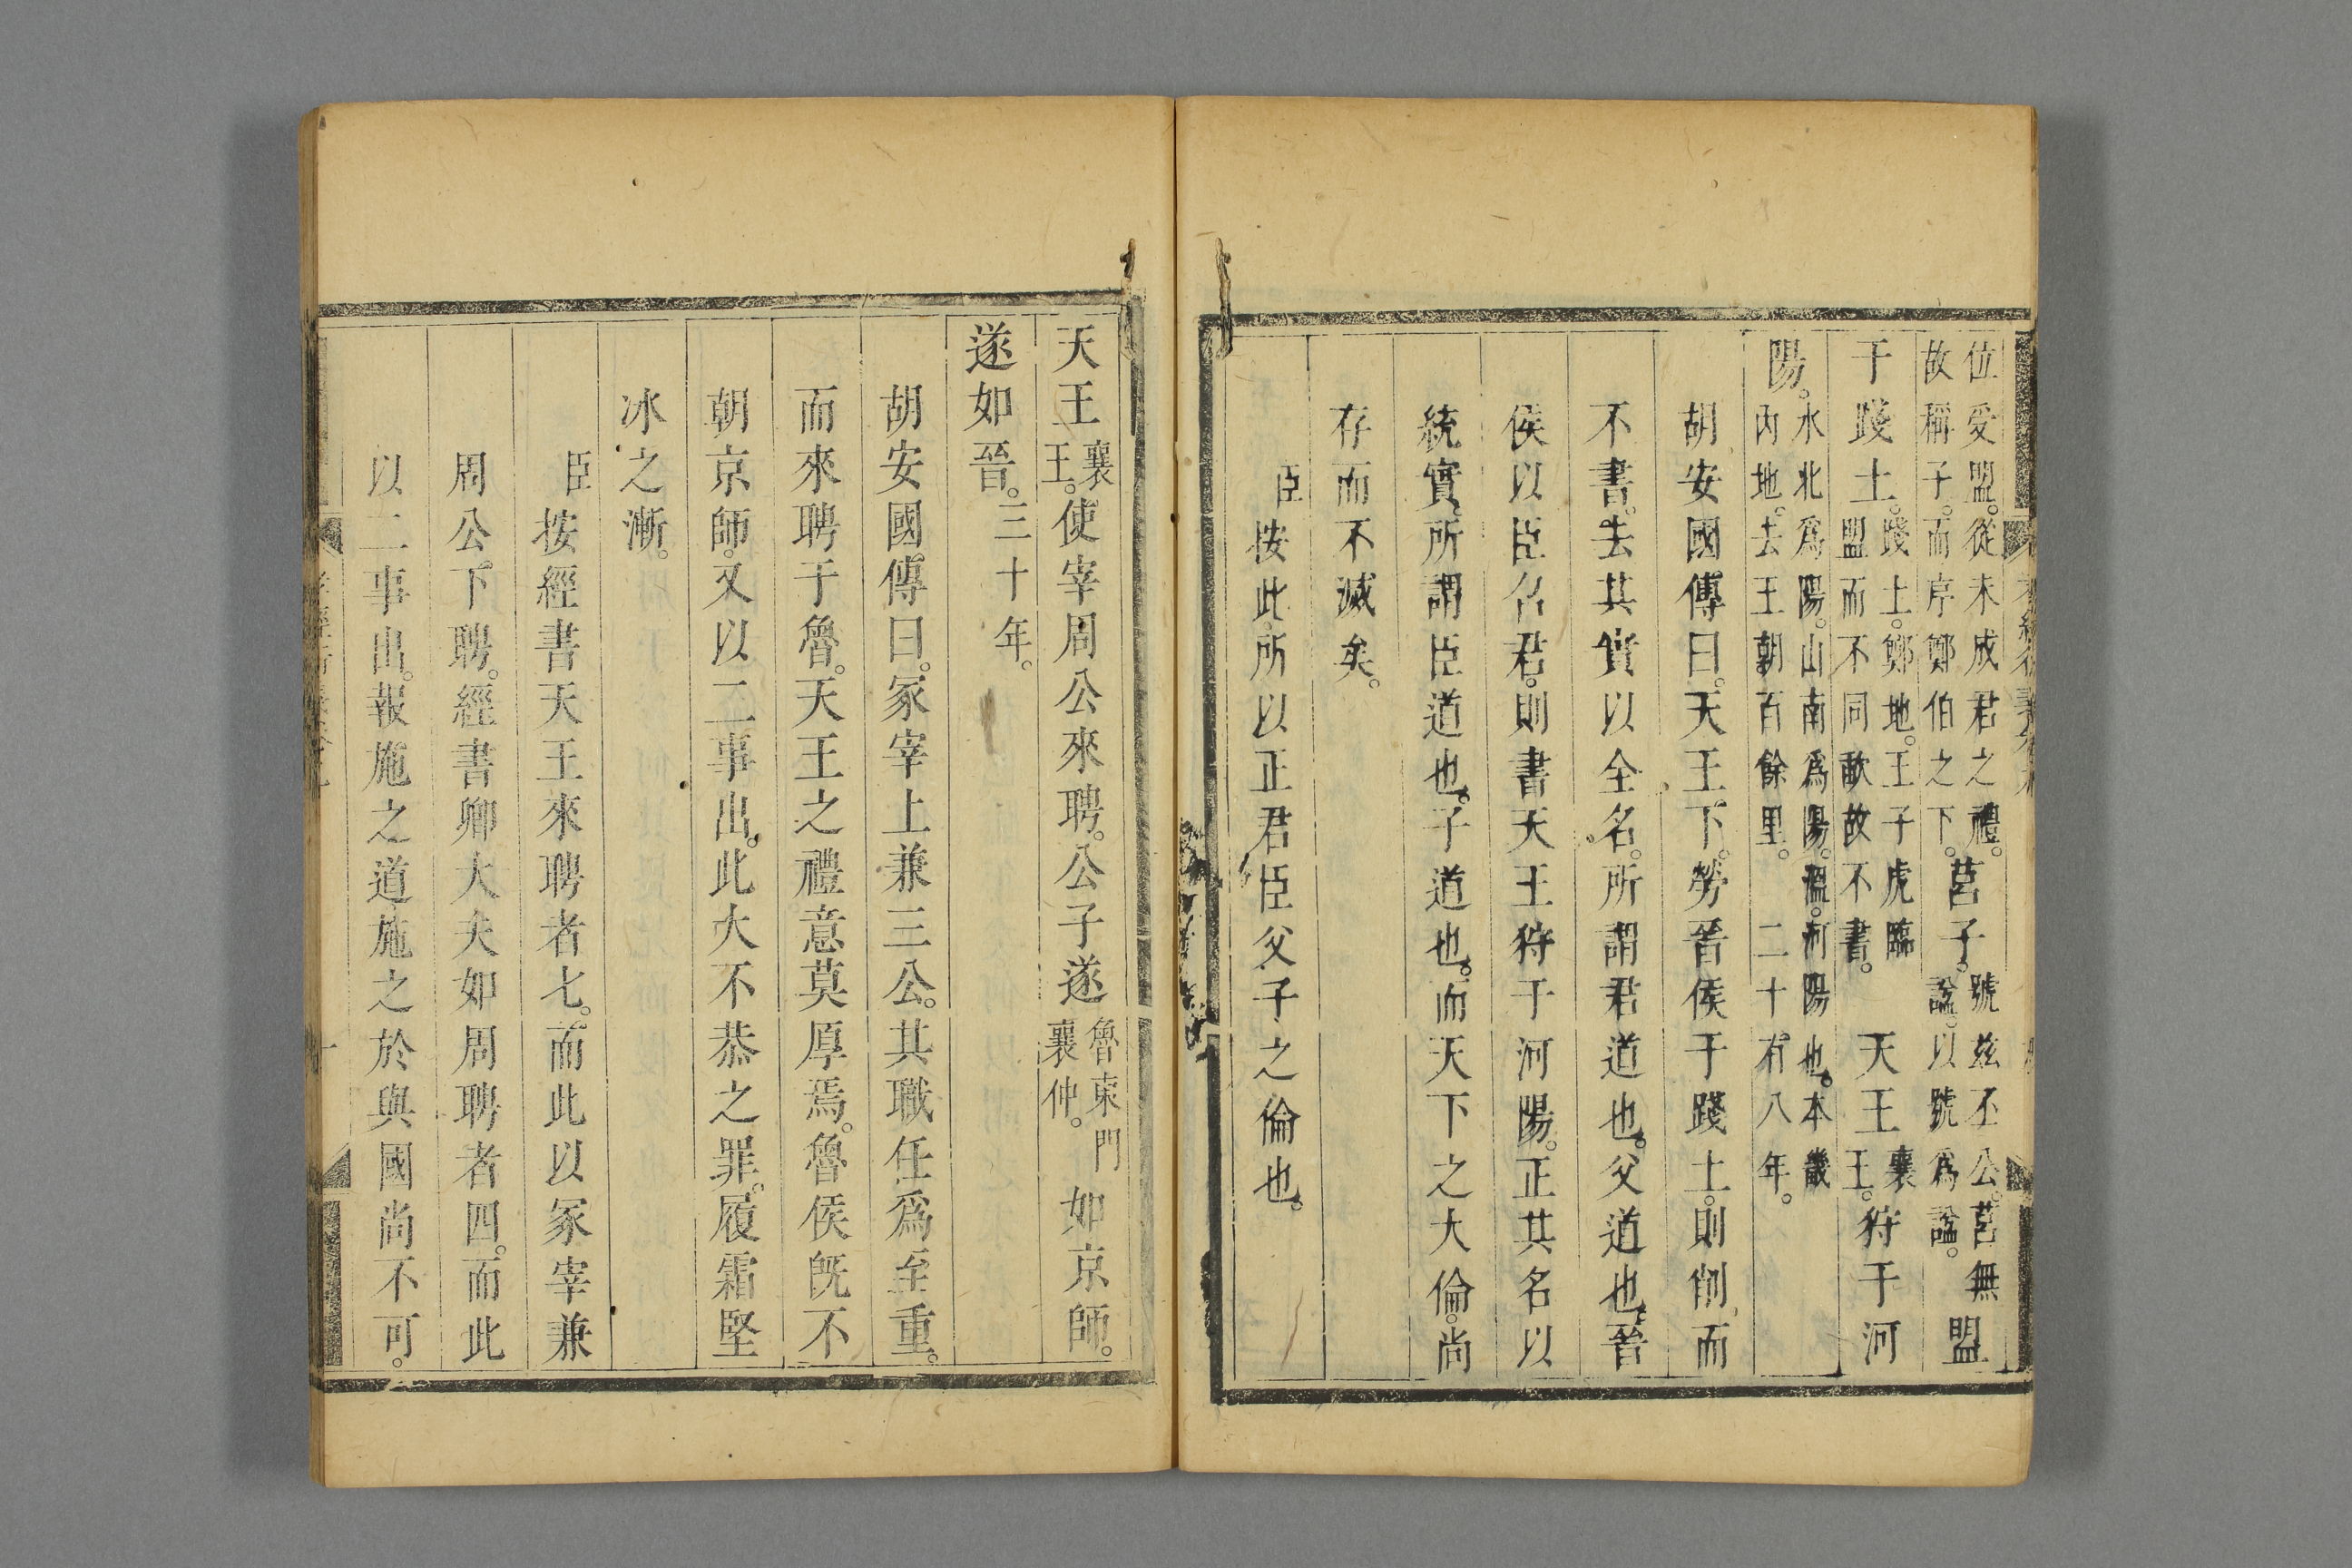 位受盟。從未成君之禮。
故稱子。而序鄭伯之下。莒子。號茲丕公。莒無諡。以號爲諡。盟
于踐土。踐土。鄭地。王子虎臨盟而不同歃。故不書。天王襄王。狩于河
陽。水北爲陽。山南爲陽。溫。河陽也。本畿內地。去王朝百餘里。二十有八年。
胡安國傳曰。天王下勞晉侯于踐土。則削而
不書。去其實以全名。所謂君道也。父道也。晉
侯以臣召君。則書天王狩于河陽。正其名以
統實。所謂臣道也。子道也。而天下之大倫。尚
存而不滅矣。
臣按此。所以正君臣父子之倫也。
天王襄王。使宰周公來聘。公子遂魯東門襄仲。如京師。
遂如晉。三十年。
胡安國傳曰。冢宰上兼三公。其職任爲至重。
而來聘于魯。天王之禮意莫厚焉。魯侯旣不
朝京師。又以二事出。此大不恭之罪。履霜堅
冰之漸。
臣按經書天王來聘者七。而此以冢宰兼
周公。下聘。經書卿大夫如周聘者四。而此
以二事出。報施之道施之於與國尚不可。